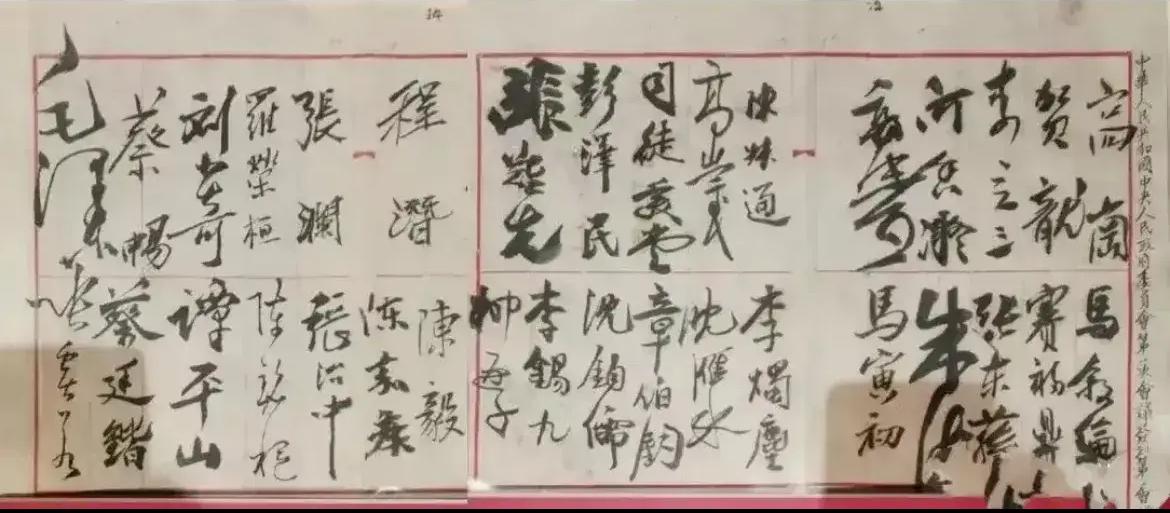 中華人民共和國中央人民政府委員會第一次會議簽到
高崗
賀龍
李立三
何香凝
陳叔通
高崇民
司徒美堂
彭澤民
張難先
程潛
張瀾
羅榮桓
刘少奇
蔡暢
毛澤东
馬叙倫
賽福鼎
張東蓀
朱德
馬寅初
李燭塵
沈雁冰
章伯鈞
沈鈞儒
李錫九
柳亞子
陳毅
陳嘉庚
張治中
陳銘樞
譚平山
蔡廷鍇